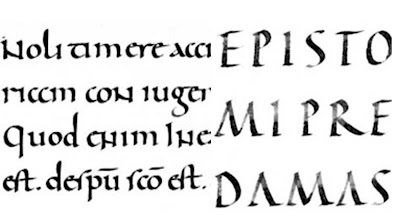 Noli timere acci
riam con iuge
Quod enim in e
est. de spū sc̄o est.
EPISTO
MI PRE
DAMAS